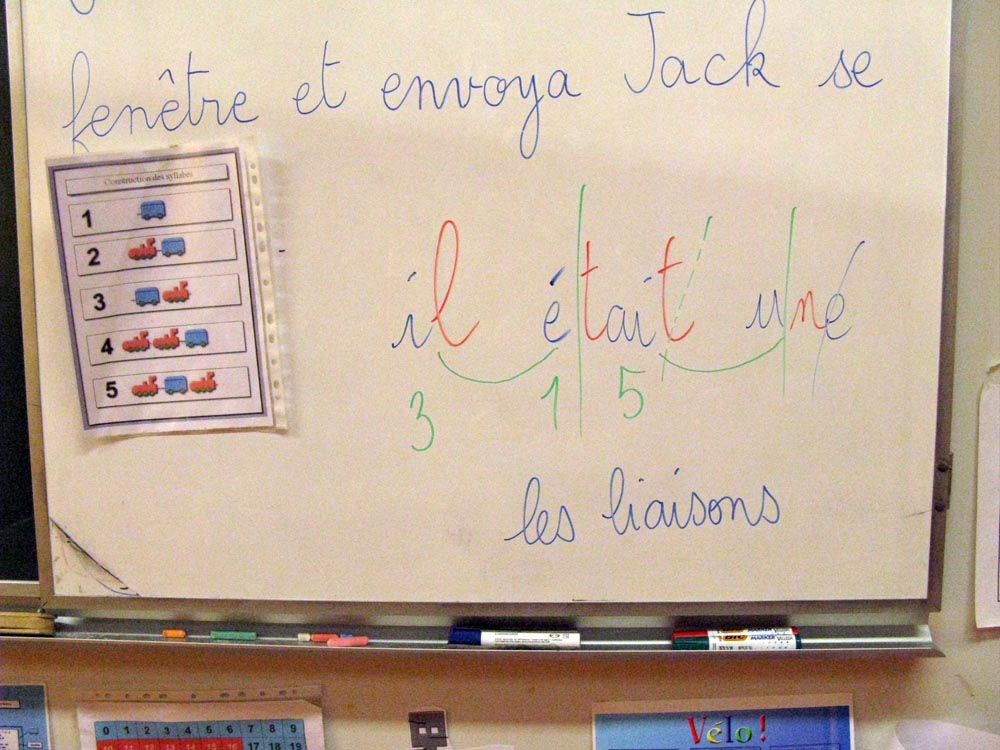 fenêtre et envoya Jack se
Construction des syllabes
1
2
3
4
5
il était une
3 1 5
les liaisons
BIC MARKER
Vélo !
0 1 2 3 4 5 6 7 8 9
10 11 12 13 14 15 16 17 18 19